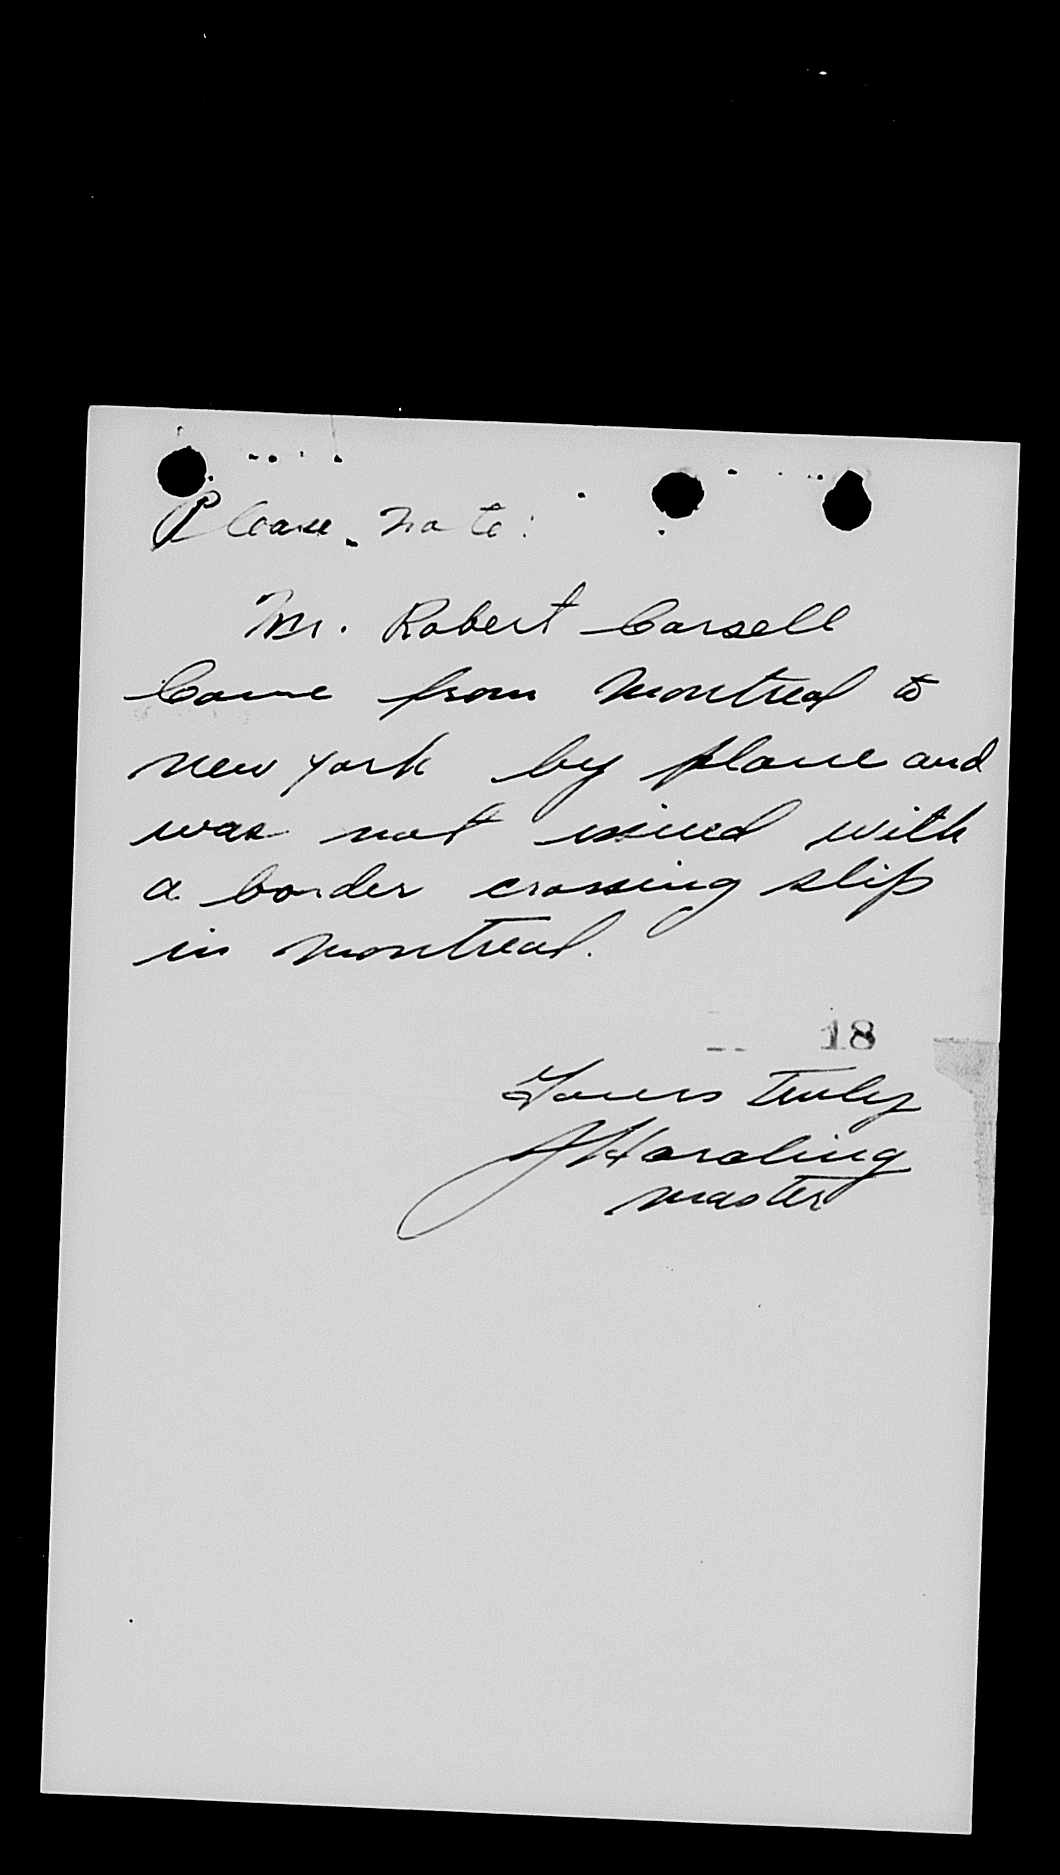 Please note:
Mr. Robert Carsell
Came from Montreal to
New York by plane and
was not issued with
a border crossing slip
in Montreal.
18
Yours truly
J Harding
Master